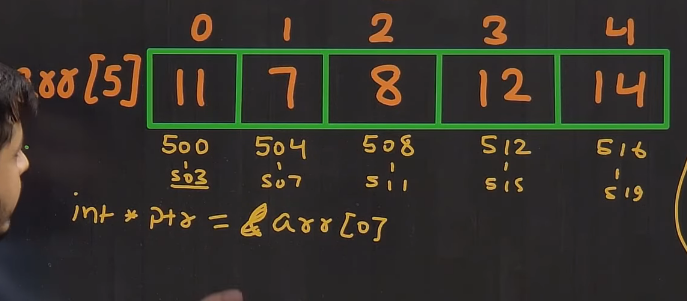 0 1 2 3 4
arr[5] 11 7 8 12 14
500 504 508 512 516
503 507 511 515 519
int * ptr = & arr[0]